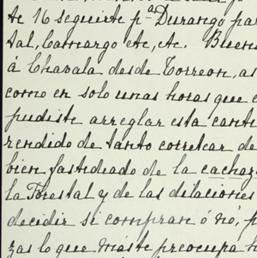 te 16 seguirte pª Durango par
tal, Camargo etc, etc. Buen
á Chavala desde Torreon, as
como en solo unas horas que e
pudiste arreglar esta canti
rendido de tanto corretear de
bien fastidiado de la cachaz
la Forestal y de las dilaciones
decidir si compran ó no, p
zas lo que más te preocupa h